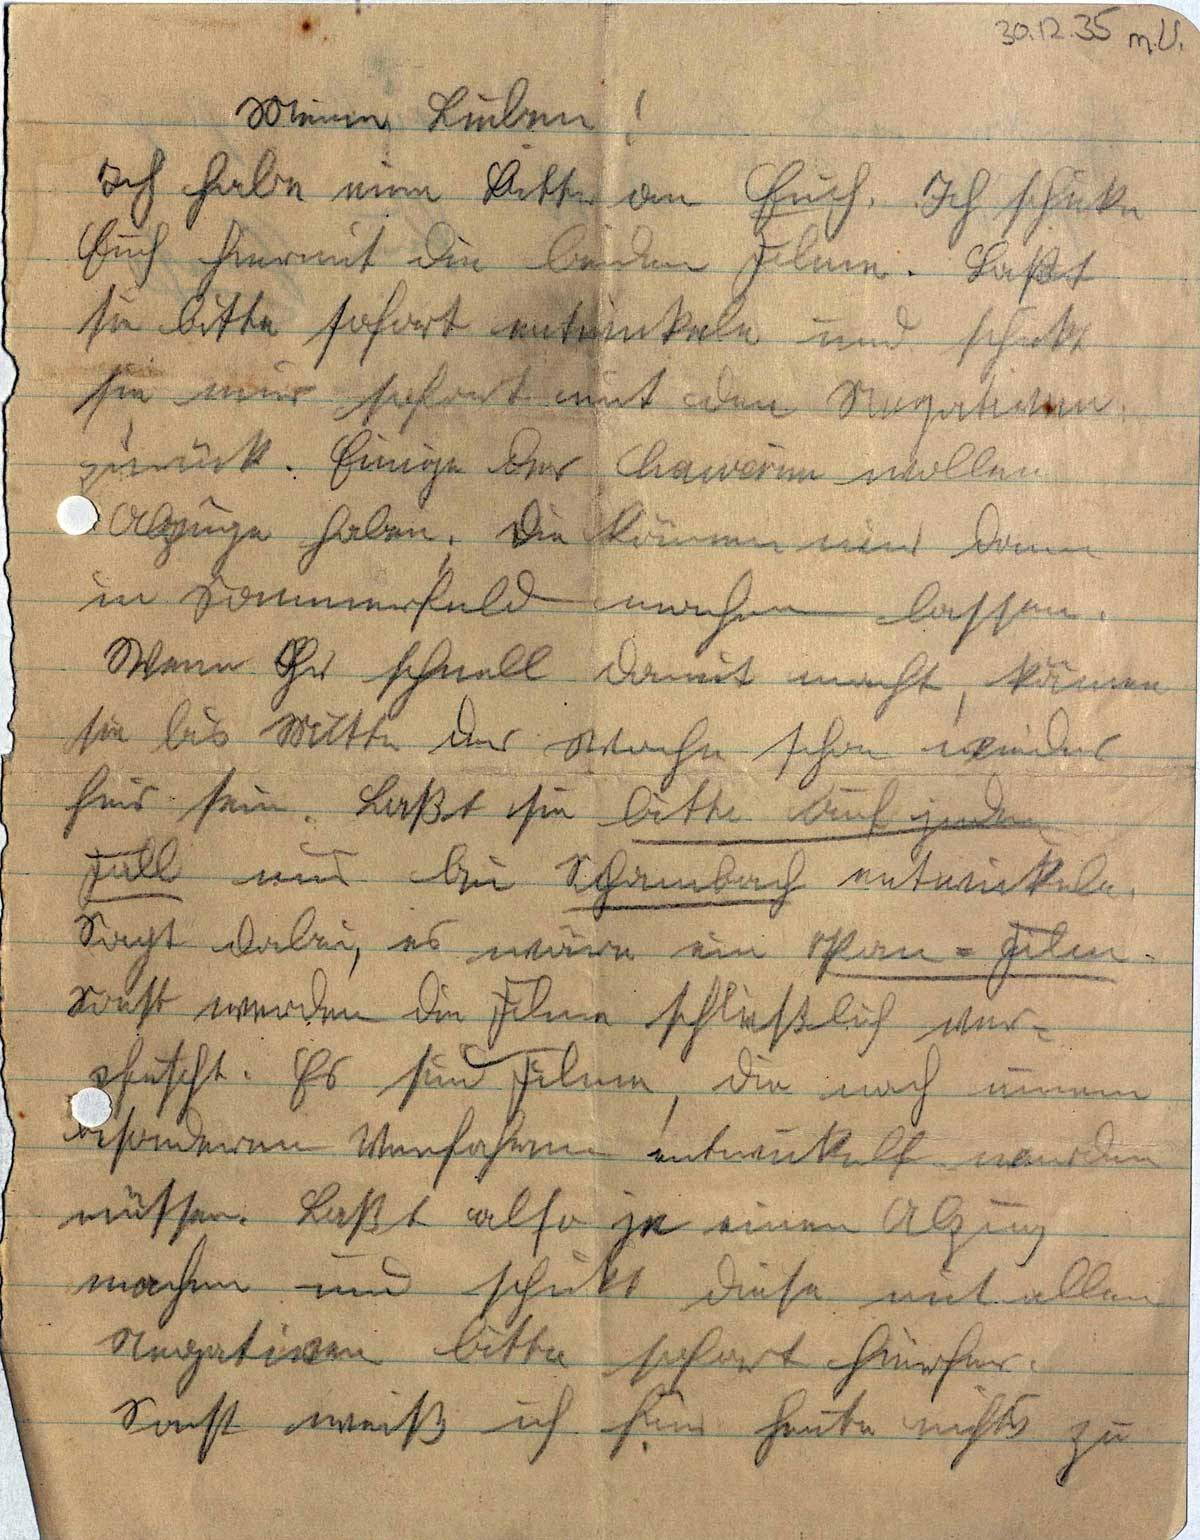 30.12.35 M.U.
Meine Lieben!
Ich habe eine Bitte an Euch. Ich schicke
Euch hiermit die beiden Filme. Laßt
sie bitte sofort entwickeln und schickt
sie mir sofort mit den Negativen
zurück. Einige der Chawerim wollen
Abzüge haben. Die können wir dann
in Sommerfeld machen lassen.
Wenn Ihr schnell damit macht, können
sie bis Mitte der Woche schon wieder
hier sein. Laßt sie bitte auf jeden
Fall nur bei Schambach entwickeln.
Sagt dabei, es wäre ein Pan=Film.
Sonst werden die Filme schließlich ver=
pfuscht. Es sind Filme, die nach einem
besonderen Verfahren entwickelt werden
müssen. Laßt also je einen Abzug
machen und schickt diese mit allen
Negativen bitte sofort hierher.
Sonst weiß ich für heute nichts zu